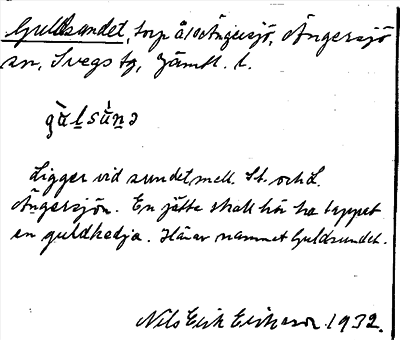 Guldsundet, torp å 10 Ängersjö, Ängersjö
sn, Svegs tg, Jämtl. l.
gùl̠sùn̠ə
Ligger vid sundet mell. St. och L.
Ängersjön. En jätte skall här ha tappet
en guldkedja. Härav namnet Guldsundet.
Nils Erik Eriksson 1932.